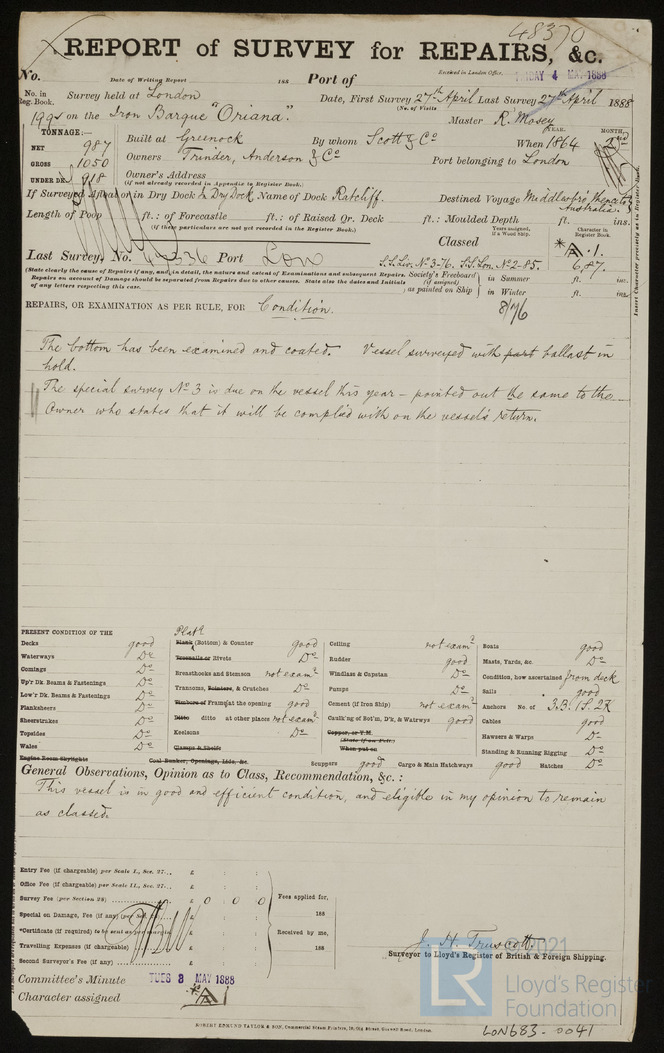 48370
REPORT of SURVEY for REPAIRS, &c.
No. Date of Writing Report 188 Port of Received in London Office, MAY 4 MAY 1888
No. in Reg. Book. Survey held at London Date, First Survey 27th April Last Survey 27th April 1888
(No. of Visits
199 on the Iron Barque "Oriana". Master R. Mosey
TONNAGE:— YEAR. MONTH.
NET 987 Built at Greenock By whom Scott & Co When 1864 2nd
GROSS 1050 Owners Trinder, Anderson & Co Port belonging to London
UNDER DK. 918 Owner's Address
(if not already recorded in Appendix to Register Book.)
If Surveyed Afloat or in Dry Dock Dry Dock Name of Dock Ratcliff. Destined Voyage Middlesbro' thence to Australia.
Length of Poop ft.: of Forecastle ft.: of Raised Qr. Deck ft.: Moulded Depth ft. ins.
(If these particulars are not yet recorded in the Register Book.)
Classed Years assigned, if a Wood Ship. Character in Register Book.
*A.1.
Last Survey, No. 336 Port Lon S.S. Liv. No 3-76. S.S. Lon. No 2-85. 6,87.
(State clearly the cause of Repairs if any, and in detail, the nature and extent of Examinations and subsequent Repairs. Repairs on account of Damage should be separated from Repairs due to other causes. State also the dates and Initials of any letters respecting this case.
Society's Freeboard (if assigned) as painted on Ship in Summer ft. ins.
in Winter ft. ins.
REPAIRS, OR EXAMINATION AS PER RULE, FOR Condition. 8/7/6
Insert Character precisely as in Register Book.
The bottom has been examined and coated. Vessel surveyed with part ballast in
hold.
The special survey No 3 is due on the vessel this year – pointed out the same to the
Owner who states that it will be complied with on the vessel's return.
PRESENT CONDITION OF THE
Decks good
Waterways Do
Comings Do
Up'r Dk. Beams & Fastenings Do
Low'r Dk. Beams & Fastenings Do
Planksheers Do
Sheerstrakes Do
Topsides Do
Wales Do
Engine Room Skylights
Platg
Plank (Bottom) & Counter good
Treenails or Rivets Do
Breasthooks and Stemson not examd
Transoms, Pointers, & Crutches Do
Timbers of Frames at the opening good
Ditto ditto at other places not examd
Keelsons Do
Clamps & Shelfs
Coal Bunker, Openings, Lids, &c.
Ceiling not examd
Rudder good
Windlass & Capstan Do
Pumps Do
Cement (if Iron Ship) not examd
Caulk'ng of Bot'm, D'k, & Watrwys good
Copper, or Y.M.
(State if on Felt.)
When put on
Scuppers good Cargo & Main Hatchways good Hatches Do
Boats good
Masts, Yards, &c. Do
Condition, how ascertained from deck
Sails good
Anchors No. of 3.B. 1S. 2K
Cables good
Hawsers & Warps Do
Standing & Running Rigging Do
General Observations, Opinion as to Class, Recommendation, &c.:
This vessel is in good and efficient condition, and eligible in my opinion to remain
as classed.
Entry Fee (if chargeable) per Scale I., Sec. 27... £ : :
Office Fee (if chargeable) per Scale II., Sec. 27... £ : :
Survey Fee (per Section 28) £ 0 0 0
Special on Damage, Fee (if any) £ : :
*Certificate (if required) to be sent as per margin £ : :
Travelling Expenses (if chargeable) £ : :
Second Surveyor's Fee (if any) £ : :
Fees applied for, 188
Received by me, 188
J. H. Truscott
Surveyor to Lloyd's Register of British & Foreign Shipping.
Committee's Minute TUES 8 MAY 1888
Character assigned *A1
ROBERT EDMUND TAYLOR & SON, Commercial Steam Printers, 19, Old Street, Goswell Road, London.
© 2021
LR Lloyd's Register
Foundation
LON683-0041